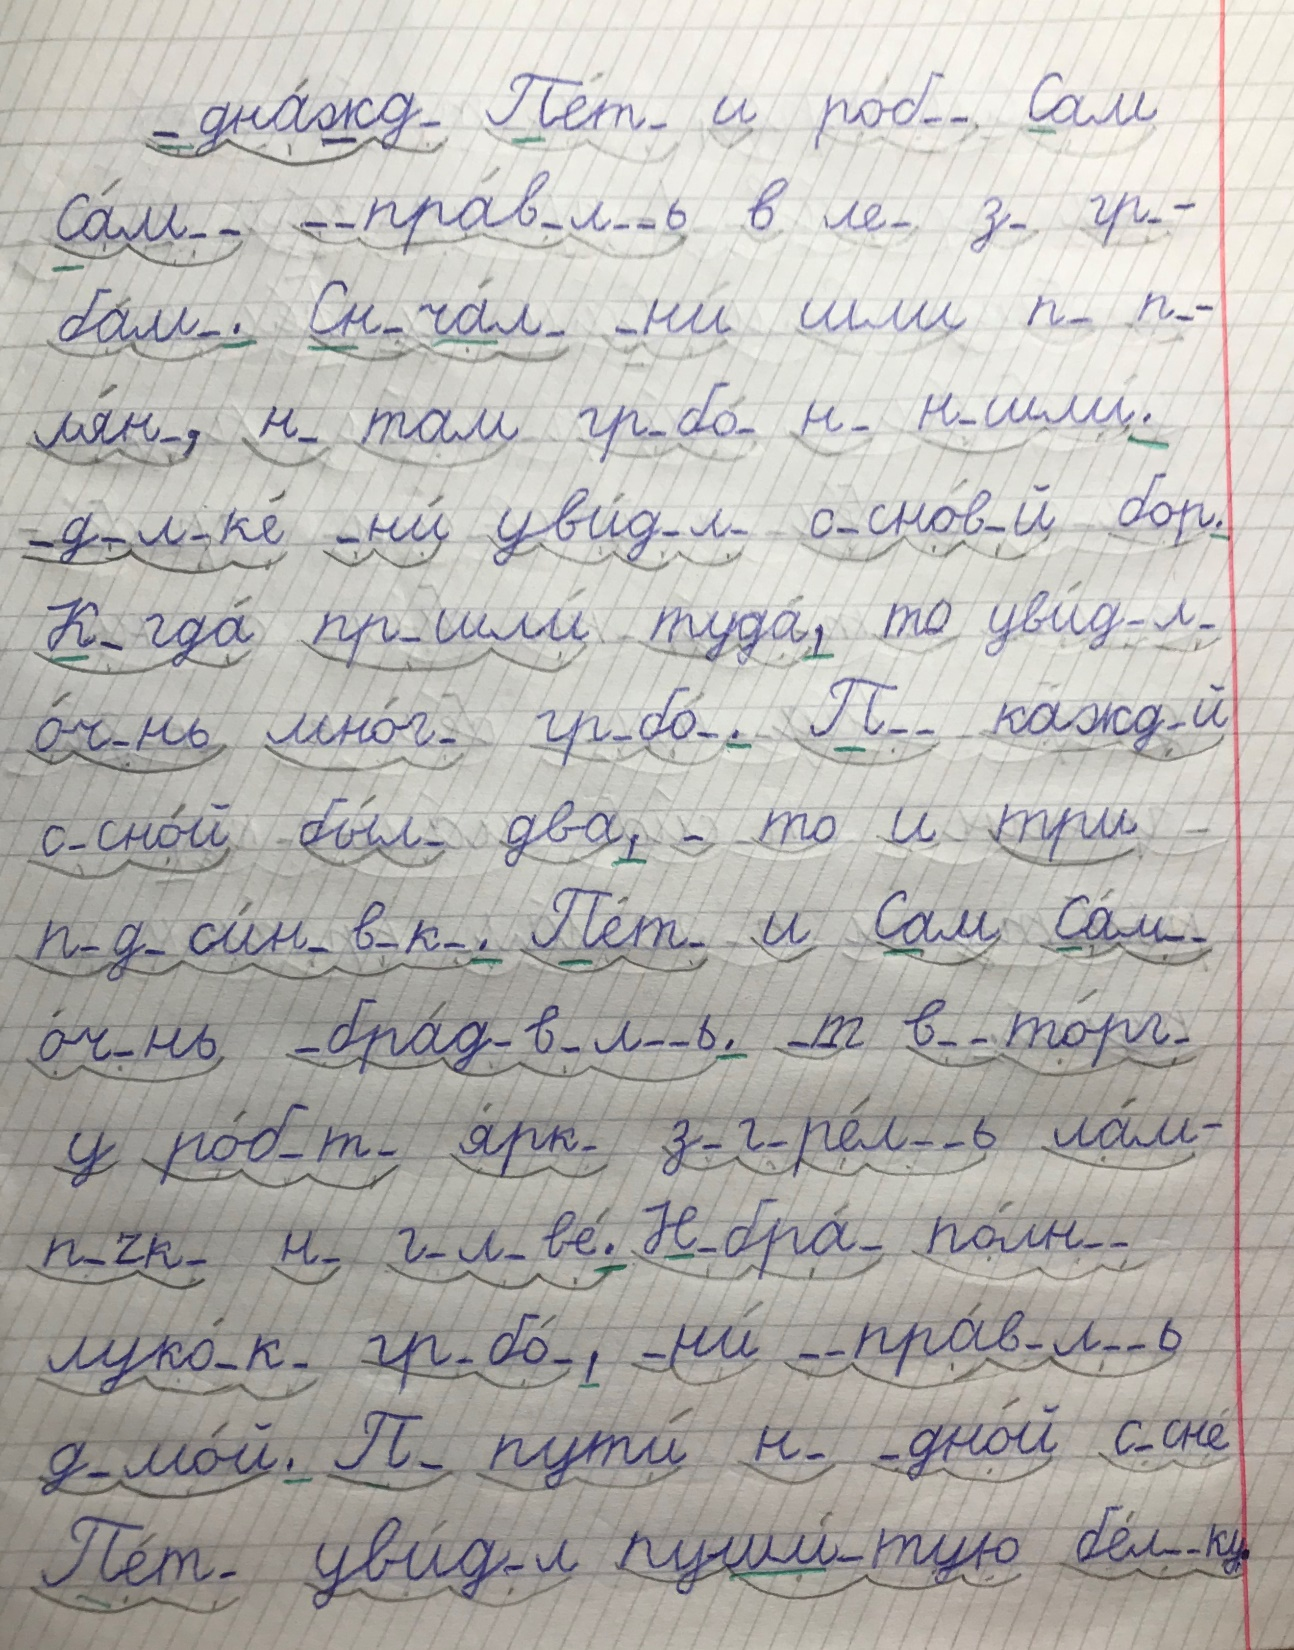 _дна́жд_ Пе́т_ и ро́б__ Сам
Са́м__ __пра́в_л__ь в ле_ з_ гр_-
ба́м_. Сн_ча́л_ _ни́ шли п_ п_-
ля́н_, н_ там гр_бо́_ н_ н_шли́.
_д_л_ке́ _ни́ уви́д_л_ с_сно́в_й бор.
К_гда́ пр_шли́ туда́, то уви́д_л_
о́ч_нь мно́г_ гр_бо́_. П__ ка́жд_й
с_сно́й бы́л_ два, _ то и три
п_д_си́н_в_к_. Пе́т_ и Сам Са́м__
о́ч_нь _бра́д_в_л__ь. _т в__то́рг_
у ро́б_т_ я́рк_ з_г_ре́л__ь ла́м-
п_чк_ н_ г_л_ве́. Н_бра́_ по́лн__
луко́_к_ гр_бо́_, _ни́ __пра́в_л__ь
д_мо́й. П_ пути́ н_ _дно́й с_сне́
Пе́т_ уви́д_л пуши́_тую бе́л__ку.